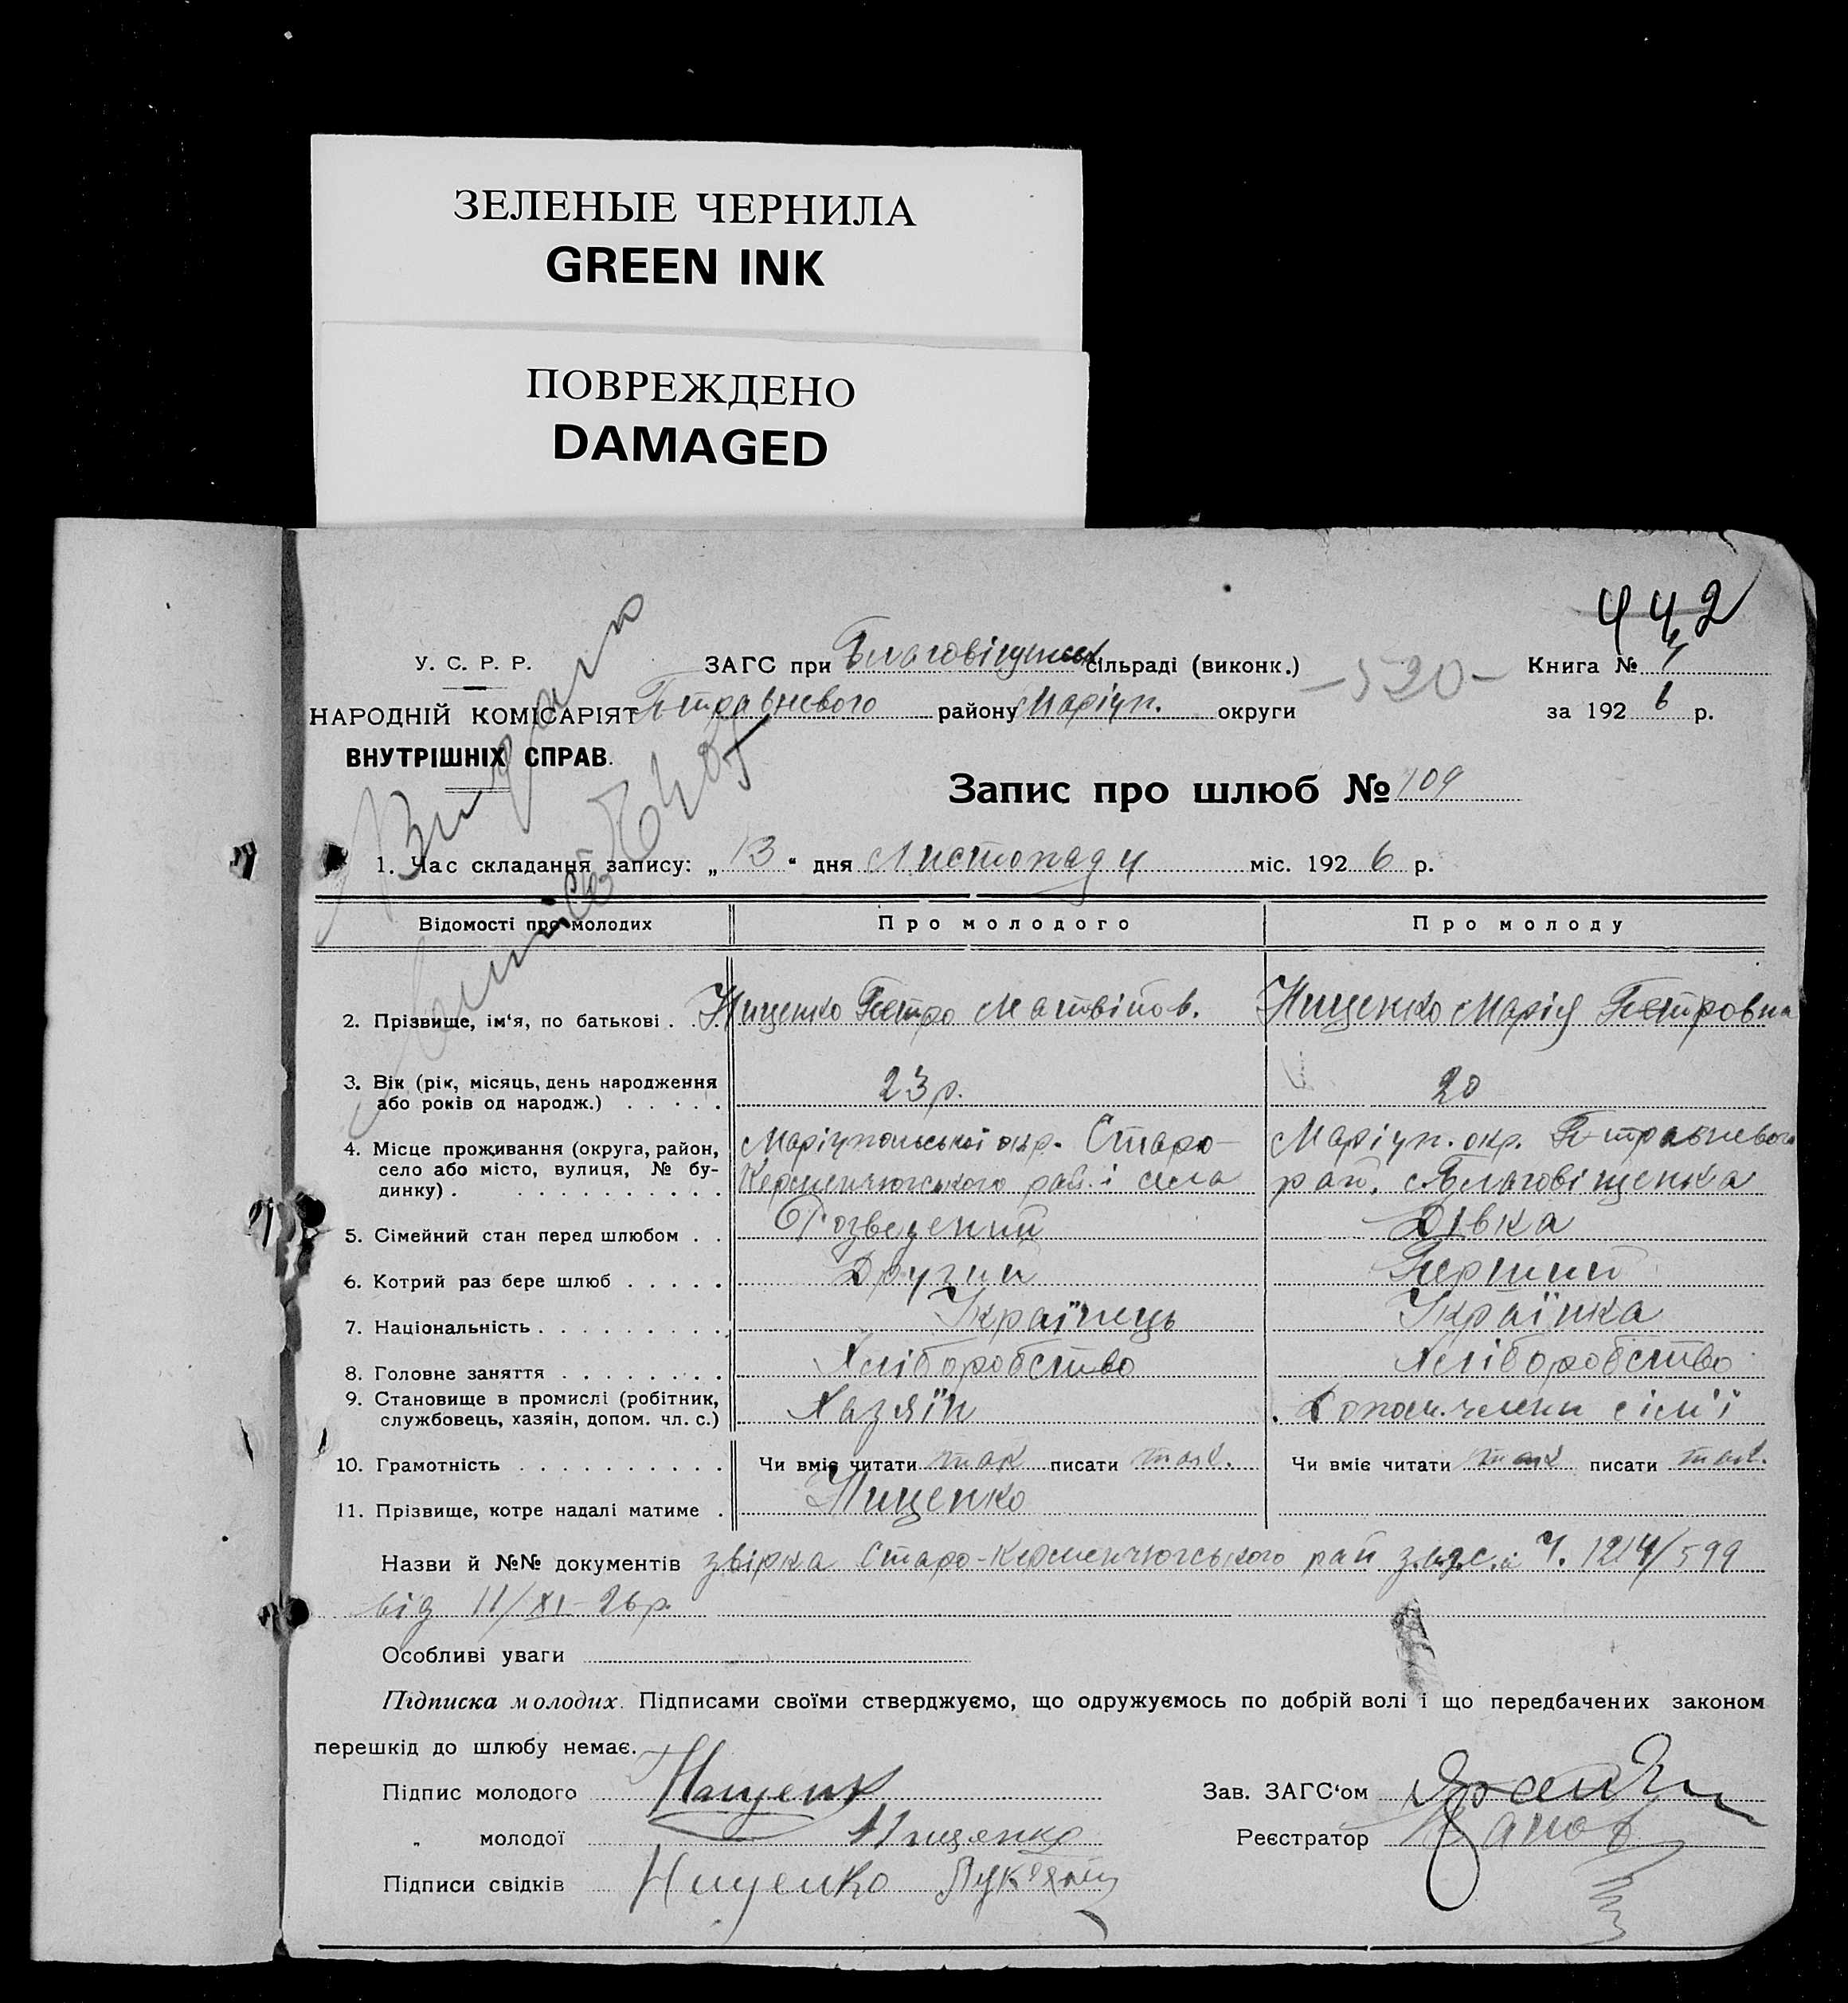 ЗЕЛЕНЫЕ ЧЕРНИЛА
GREEN INK
ПОВРЕЖДЕНО
DAMAGED
442
У. С. Р. Р. ЗАГС при Благовіщенськ сільраді (виконк.) -520- Книга № 4
НАРОДНІЙ КОМІСАРІЯТ П-травневого району Маріуп. округи за 1926 р.
ВНУТРІШНІХ СПРАВ.
Видано
Запис про шлюб № 109
1. Час складання запису: „13" дня Листопаду міс. 1926 р.
Відомості про молодих Про молодого Про молоду
2. Прізвище, ім'я, по батькові . . Нищенко Петро Матвійов. Нищенко Марія Петровна
3. Вік (рік, місяць, день народження
або років од народж.) . . . . . 23 р. 20
4. Місце проживання (округа, район, Маріупольської окр. Старо- Маріуп. окр. П-травневого
село або місто, вулиця, № бу- Керменчикського рай. і села рай. с. Благовіщенка
динку) . . . . . . . . . . .
5. Сімейний стан перед шлюбом . . Розведений Дівка
6. Котрий раз бере шлюб . . . . . Другий Перший
7. Національність . . . . . . . . . Українець Українка
8. Головне заняття . . . . . . . . Хліборобство Хліборобство
9. Становище в промислі (робітник,
службовець, хазяїн, допом. чл. с.) Хазяїн Допом. член сім'ї
10. Грамотність . . . . . . . . . . Чи вміє читати так писати так. Чи вміє читати так писати так.
11. Прізвище, котре надалі матиме . Нищенко
Назви й №№ документів звірка Старо-Керменчикського рай з.а.г.с.а Ч. 1214/599
від 11/XI-26 р.
Особливі уваги
Підписка молодих. Підписами своїми стверджуємо, що одружуємось по добрій волі і що передбачених законом
перешкід до шлюбу немає.
Підпис молодого Нищенк Зав. ЗАГС'ом
„ молодої Нищенко Реєстратор
Підписи свідків Нищенко